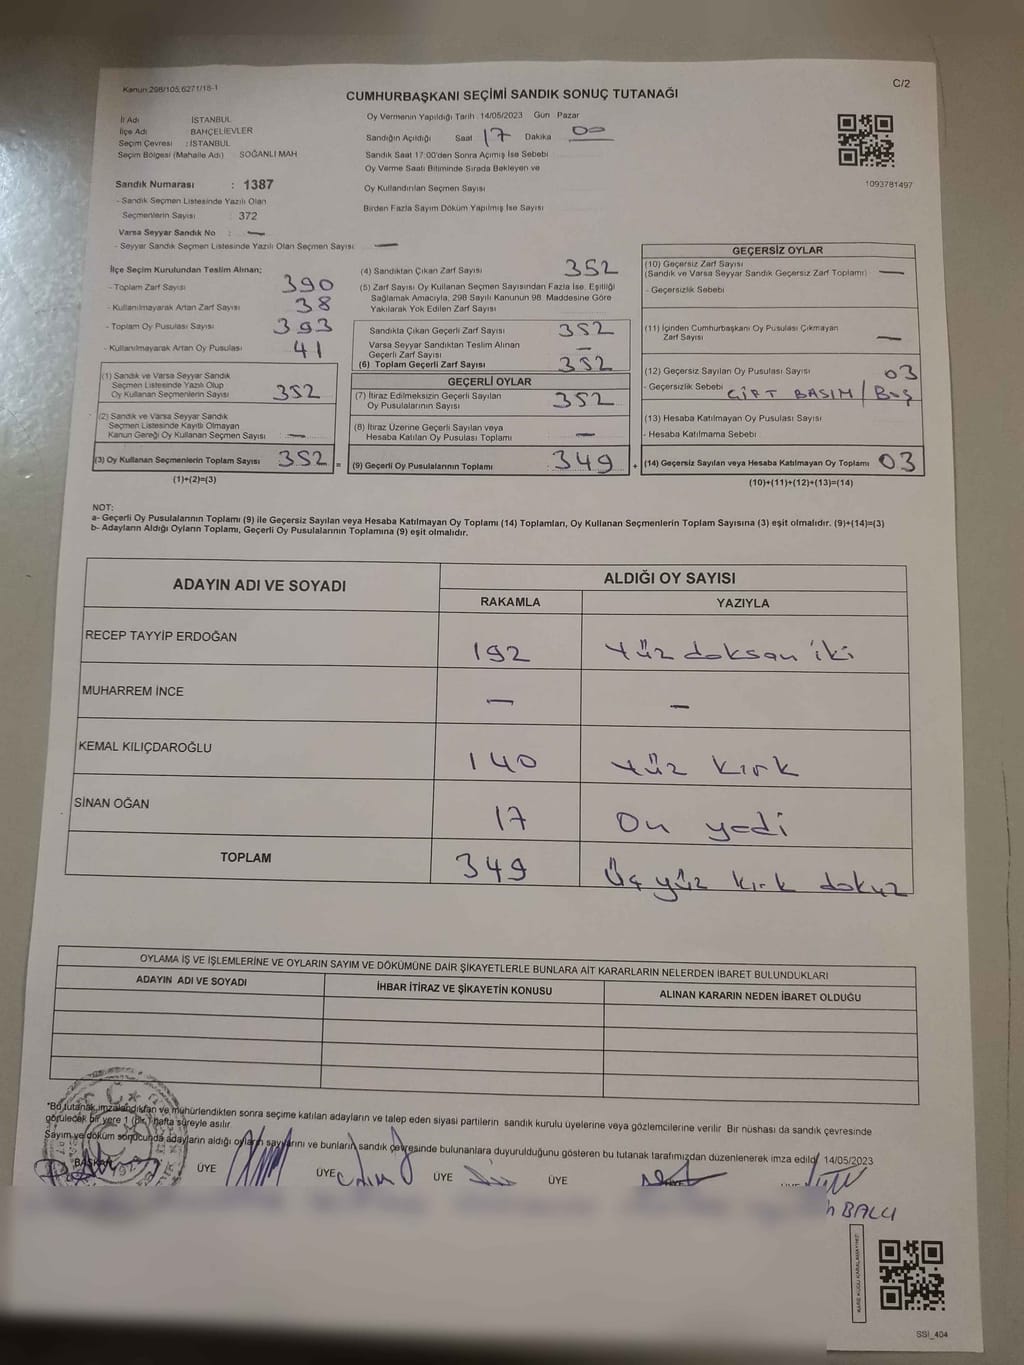 Kanun:298/105,6271/18-1
C/2
CUMHURBAŞKANI SEÇİMİ SANDIK SONUÇ TUTANAĞI
İl Adı İSTANBUL
İlçe Adı BAHÇELİEVLER
Seçim Çevresi : İSTANBUL
Seçim Bölgesi (Mahalle Adı) SOĞANLI MAH
Oy Vermenin Yapıldığı Tarih 14/05/2023 Gün Pazar
Sandığın Açıldığı Saat 17 Dakika 00
Sandık Saat 17:00'den Sonra Açımış İse Sebebi
Oy Verme Saati Bitiminde Sırada Bekleyen ve
Oy Kullandırılan Seçmen Sayısı
Birden Fazla Sayım Döküm Yapılmış İse Sayısı
1093781497
Sandık Numarası : 1387
- Sandık Seçmen Listesinde Yazılı Olan
Seçmenlerin Sayısı : 372
Varsa Seyyar Sandık No : —
- Seyyar Sandık Listesinde Yazılı Olan Seçmen Sayısı —
İlçe Seçim Kurulundan Teslim Alınan;
- Toplam Zarf Sayısı 390
- Kullanılmayarak Artan Zarf Sayısı 38
- Toplam Oy Pusulası Sayısı 393
- Kullanılmayarak Artan Oy Pusulası 41
(1) Sandık ve Varsa Seyyar Sandık
Seçmen Listesinde Yazılı Olup
Oy Kullanan Seçmenlerin Sayısı 352
(2) Sandık ve Varsa Seyyar Sandık
Seçmen Listesinde Kayıtlı Olmayan
Kanun Gereği Oy Kullanan Seçmen Sayısı —
(3) Oy Kullanan Seçmenlerin Toplam Sayısı 352 =
(1)+(2)=(3)
(4) Sandıktan Çıkan Zarf Sayısı 352
(5) Zarf Sayısı Oy Kullanan Seçmen Sayısından Fazla İse, Eşitliği
Sağlamak Amacıyla, 298 Sayılı Kanunun 98. Maddesine Göre
Yakılarak Yok Edilen Zarf Sayısı
Sandıkta Çıkan Geçerli Zarf Sayısı 352
Varsa Seyyar Sandıktan Teslim Alınan
Geçerli Zarf Sayısı —
(6) Toplam Geçerli Zarf Sayısı 352
GEÇERLİ OYLAR
(7) İtiraz Edilmeksizin Geçerli Sayılan
Oy Pusulalarının Sayısı 352
(8) İtiraz Üzerine Geçerli Sayılan veya
Hesaba Katılan Oy Pusulası Toplamı —
(9) Geçerli Oy Pusulalarının Toplamı 349 +
GEÇERSİZ OYLAR
(10) Geçersiz Zarf Sayısı
(Sandık ve Varsa Seyyar Sandık Geçersiz Zarf Toplamı) —
- Geçersizlik Sebebi
(11) İçinden Cumhurbaşkanı Oy Pusulası Çıkmayan
Zarf Sayısı —
(12) Geçersiz Sayılan Oy Pusulası Sayısı 03
- Geçersizlik Sebebi ÇİFT BASIM / Boş
(13) Hesaba Katılmayan Oy Pusulası Sayısı
- Hesaba Katılmama Sebebi
(14) Geçersiz Sayılan veya Hesaba Katılmayan Oy Toplamı 03
(10)+(11)+(12)+(13)=(14)
NOT:
a- Geçerli Oy Pusulalarının Toplamı (9) ile Geçersiz Sayılan veya Hesaba Katılmayan Oy Toplamı (14) Toplamları, Oy Kullanan Seçmenlerin Toplam Sayısına (3) eşit olmalıdır. (9)+(14)=(3)
b- Adayların Aldığı Oyların Toplamı, Geçerli Oy Pusulalarının Toplamına (9) eşit olmalıdır.
ADAYIN ADI VE SOYADI
ALDIĞI OY SAYISI
RAKAMLA YAZIYLA
RECEP TAYYİP ERDOĞAN 192 Yüz doksan iki
MUHARREM İNCE — —
KEMAL KILIÇDAROĞLU 140 Yüz kırk
SİNAN OĞAN 17 On yedi
TOPLAM 349 Üç yüz kırk dokuz
OYLAMA İŞ VE İŞLEMLERİNE VE OYLARIN SAYIM VE DÖKÜMÜNE DAİR ŞİKAYETLERLE BUNLARA AİT KARARLARIN NELERDEN İBARET BULUNDUKLARI
ADAYIN ADI VE SOYADI İHBAR İTİRAZ VE ŞİKAYETİN KONUSU ALINAN KARARIN NEDEN İBARET OLDUĞU
*Bu tutanak,imzalandıktan ve mühürlendikten sonra seçime katılan adayların ve talep eden siyasi partilerin sandık kurulu üyelerine veya gözlemcilerine verilir Bir nüshası da sandık çevresinde
görülecek bir yere 1 (Bir) hafta süreyle asılır.
Sayım ve döküm sonucunda adayların aldığı oyların sayılarını ve bunların sandık çevresinde bulunanlara duyurulduğunu gösteren bu tutanak tarafımızdan düzenlenerek imza edildi 14/05/2023
BAŞKAN ÜYE ÜYE ÜYE ÜYE
BALLI
KARE KODU KARALAMAYINIZ!
SSİ_404